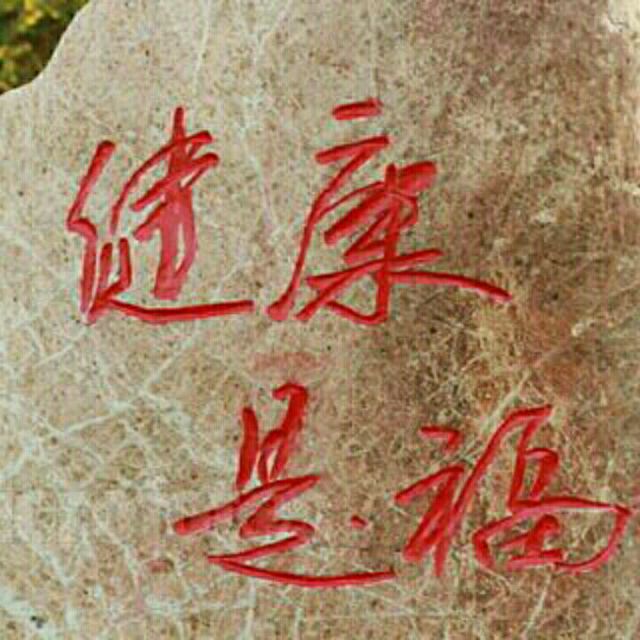 健康
是福